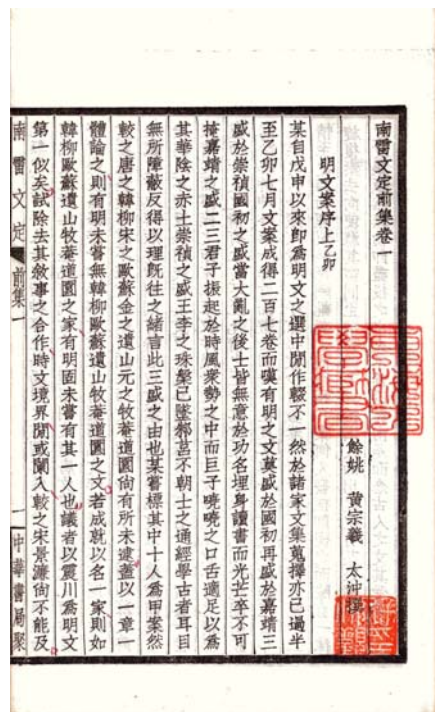 南雷文定前集卷一
餘姚 黃宗羲 太沖撰
明文案序上乙卯
某自戊申以來即為明文之選中閒作輟不一然於諸家文集蒐擇亦已過半
至乙卯七月文案成得二百七卷而嘆有明之文莫盛於國初再盛於嘉靖三
盛於崇禎國初之盛當大亂之後士皆無意於功名埋身讀書而光芒卒不可
掩嘉靖之盛二三君子振起於時風眾勢之中而巨子嘵嘵之口舌適足以為
其華陰之赤土崇禎之盛王李之珠槃已墜邾莒不朝士之通經學古者耳目
無所障蔽反得以理既往之緒言此三盛之由也某嘗標其中十人為甲案然
較之唐之韓柳宋之歐蘇金之遺山元之牧菴道園尙有所未逮蓋以一章一
體論之則有明未嘗無韓柳歐蘇遺山牧菴道園之文若成就以名一家則如
韓柳歐蘇遺山牧菴道園之家有明固未嘗有其一人也議者以震川為明文
第一似矣試除去其敘事之合作時文境界閒或闌入較之宋景濂尙不能及
南雷文定 前集一
一 中華書局聚